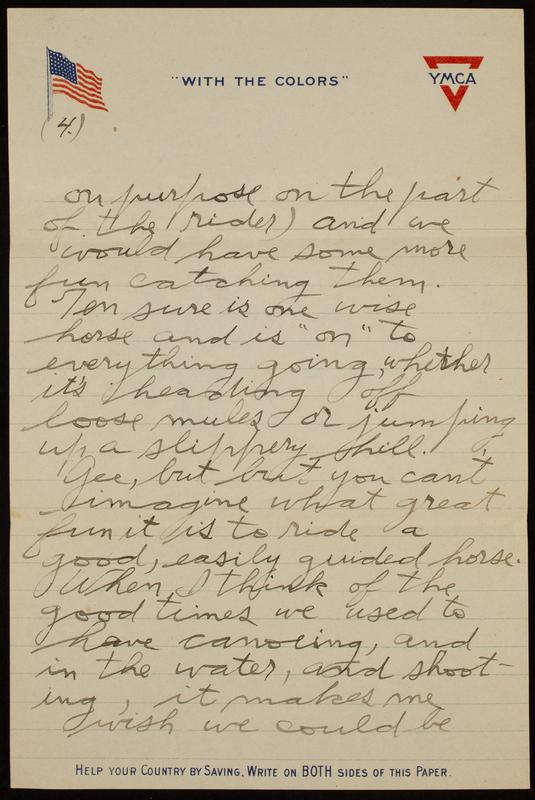 "WITH THE COLORS"
YMCA
(4.)
on purpose on the part
of the rider) and we
would have some more
fun catching them.
Ten sure is one wise
horse and is "on" to
everything going, whether
it's heading off
loose mules or jumping
up a slippery hill.
Gee, but but you can't
imagine what great
fun it is to ride a
good, easily guided horse.
When I think of the
good times we used to
have canoeing, and
in the water, and shoot-
ing, it makes me
wish we could be
HELP YOUR COUNTRY BY SAVING. WRITE ON BOTH SIDES OF THIS PAPER.